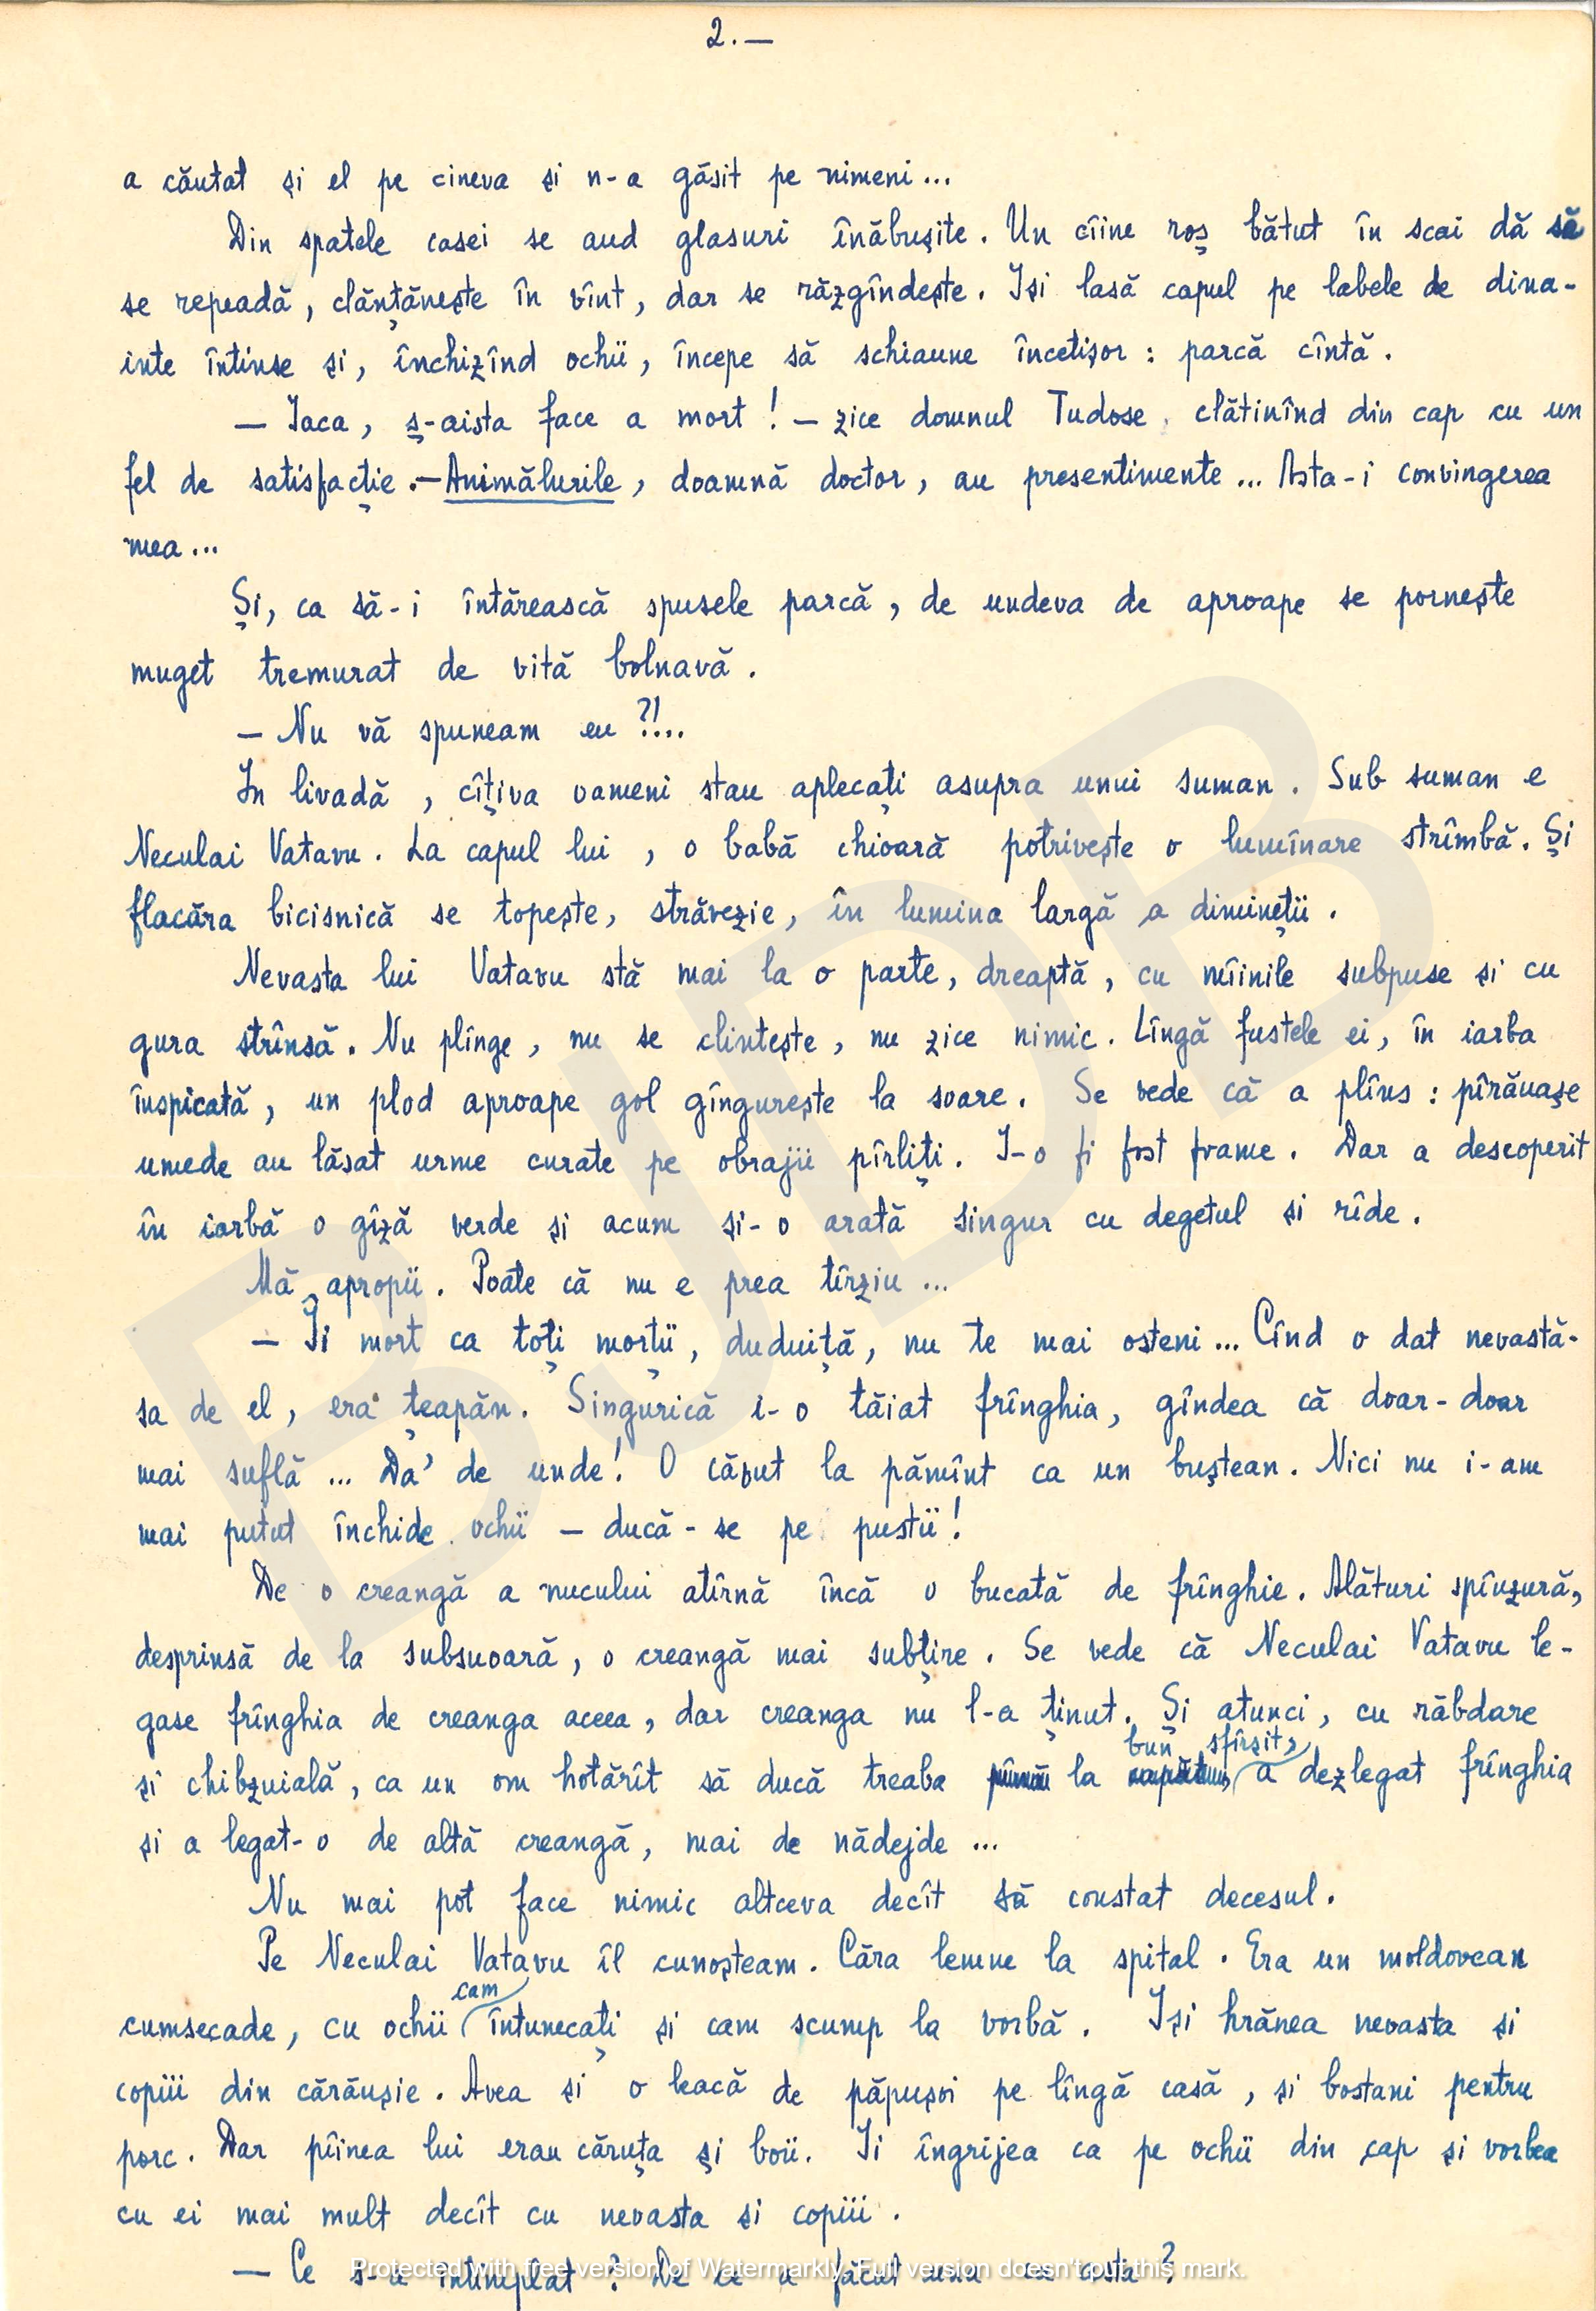 2.—
a căutat și el pe cineva și n-a găsit pe nimeni...
Din spatele casei se aud glasuri înăbușite. Un cîine roș bătut în scai dă să
se repeadă, clănțănește în vînt, dar se răzgîndește. Iși lasă capul pe labele de dina-
inte întinse și, închizînd ochii, începe să schiaune încetișor: parcă cîntă.
— Iaca, ș-aista face a mort! — zice domnul Tudose, clătinînd din cap cu un
fel de satisfacție. — Animălurile, doamnă doctor, au presentimente... Asta-i convingerea
mea...
Și, ca să-i întărească spusele parcă, de undeva de aproape se pornește
muget tremurat de vită bolnavă.
— Nu vă spuneam eu ?!...
In livadă, cîțiva oameni stau aplecați asupra unui suman. Sub suman e
Neculai Vatavu. La capul lui, o babă chioară potrivește o lumînare strîmbă. Și
flacăra bicisnică se topește, străvezie, în lumina largă a dimineții.
Nevasta lui Vatavu stă mai la o parte, dreaptă, cu mîinile subpuse și cu
gura strînsă. Nu plînge, nu se clintește, nu zice nimic. Lîngă fustele ei, în iarba
înspicată, un plod aproape gol gîngurește la soare. Se vede că a plîns: pîrăuașe
umede au lăsat urme curate pe obrajii pîrliți. I-o fi fost foame. Dar a descoperit
în iarbă o gîză verde și acum și-o arată singur cu degetul și rîde.
Mă apropii. Poate că nu e prea tîrziu...
— Îi mort ca toți morții, duduiță, nu te mai osteni... Cînd o dat nevastă-
sa de el, era țeapăn. Singurică i-o tăiat frînghia, gîndea că doar-doar
mai suflă... Da' de unde! O căzut la pămînt ca un buștean. Nici nu i-am
mai putut închide ochii — ducă-se pe pustii!
De o creangă a nucului atîrnă încă o bucată de frînghie. Alături spînzură,
desprinsă de la subsuoară, o creangă mai subțire. Se vede că Neculai Vatavu le-
gase frînghia de creanga aceea, dar creanga nu l-a ținut. Și atunci, cu răbdare
bun sfîrșit,
și chibzuială, ca un om hotărît să ducă treaba pînă la capătu, a dezlegat frînghia
și a legat-o de altă creangă, mai de nădejde...
Nu mai pot face nimic altceva decît să constat decesul.
Pe Neculai Vatavu îl cunoșteam. Căra lemne la spital. Era un moldovean
cam
cumsecade, cu ochii întunecați și cam scump la vorbă. Iși hrănea nevasta și
copiii din cărăușie. Avea și o leacă de păpușoi pe lîngă casă, și bostani pentru
porc. Dar pîinea lui erau căruța și boii. Ii îngrijea ca pe ochii din cap și vorbea
cu ei mai mult decît cu nevasta și copiii.
— Ce s-a întîmplat? De ce a făcut una ca asta?
Protected with free version of Watermarkly. Full version doesn't put this mark.
BJDB